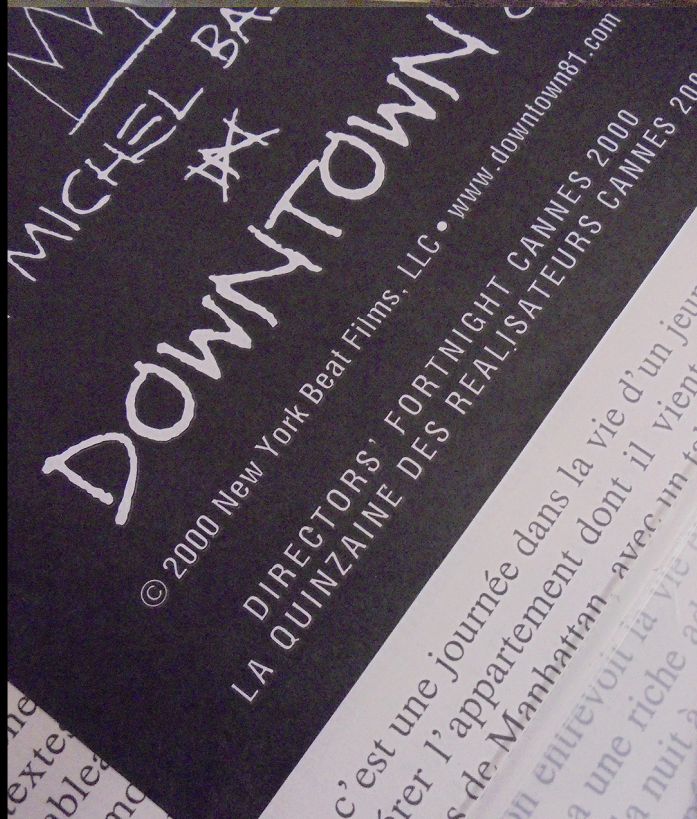 MICHEL
DOWNTOWN
© 2000 New York Beat Films, LLC • www.downtown81.com
DIRECTORS' FORTNIGHT CANNES 2000
LA QUINZAINE DES REALISATEURS CANNES
c'est une journée dans la vie d'un
l'appartement dont il vient
de Manhattan, avec un
entrevoit la vie
une riche
nuit